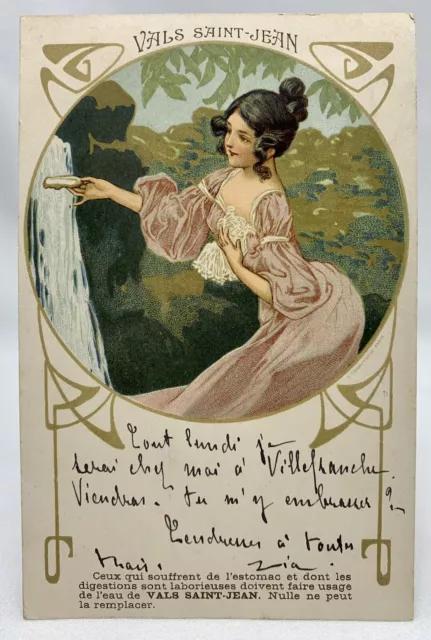 VALS SAINT-JEAN
Tout lundi je
serai chez moi à Villefranche.
Viendras-tu m'y embrasser ?
Tendresses à toutes
trois.
Ceux qui souffrent de l'estomac et dont les
digestions sont laborieuses doivent faire usage
de l'eau de VALS SAINT-JEAN. Nulle ne peut
la remplacer.